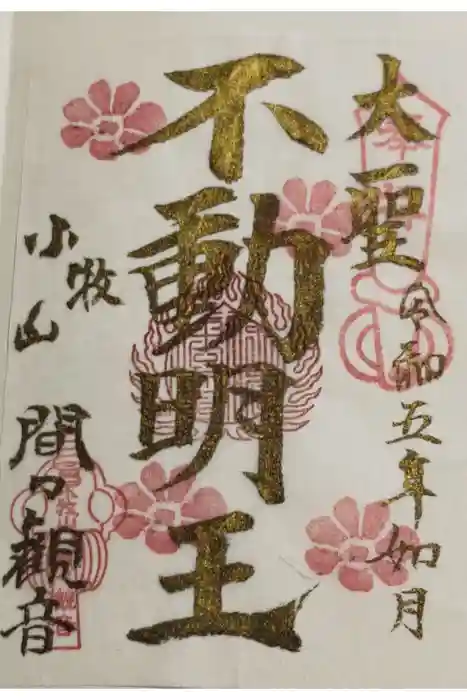 奉
大聖
令和五年如月
不動明王
小牧
小山
間々観音